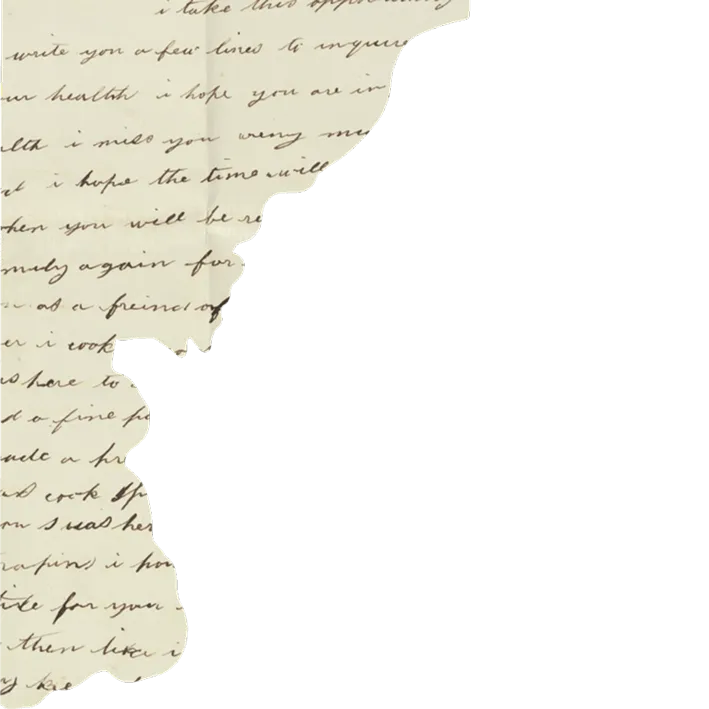 i take this opportunity
write you a few lines to inquire
ur health i hope you are in
alth i miss you wery mu
i hope the time will
when you will be re
amily again for
as a freind of
er i cook
as here to
d a fine pa
made a pr
as cook
was her
rapins i hav
for your
then like i